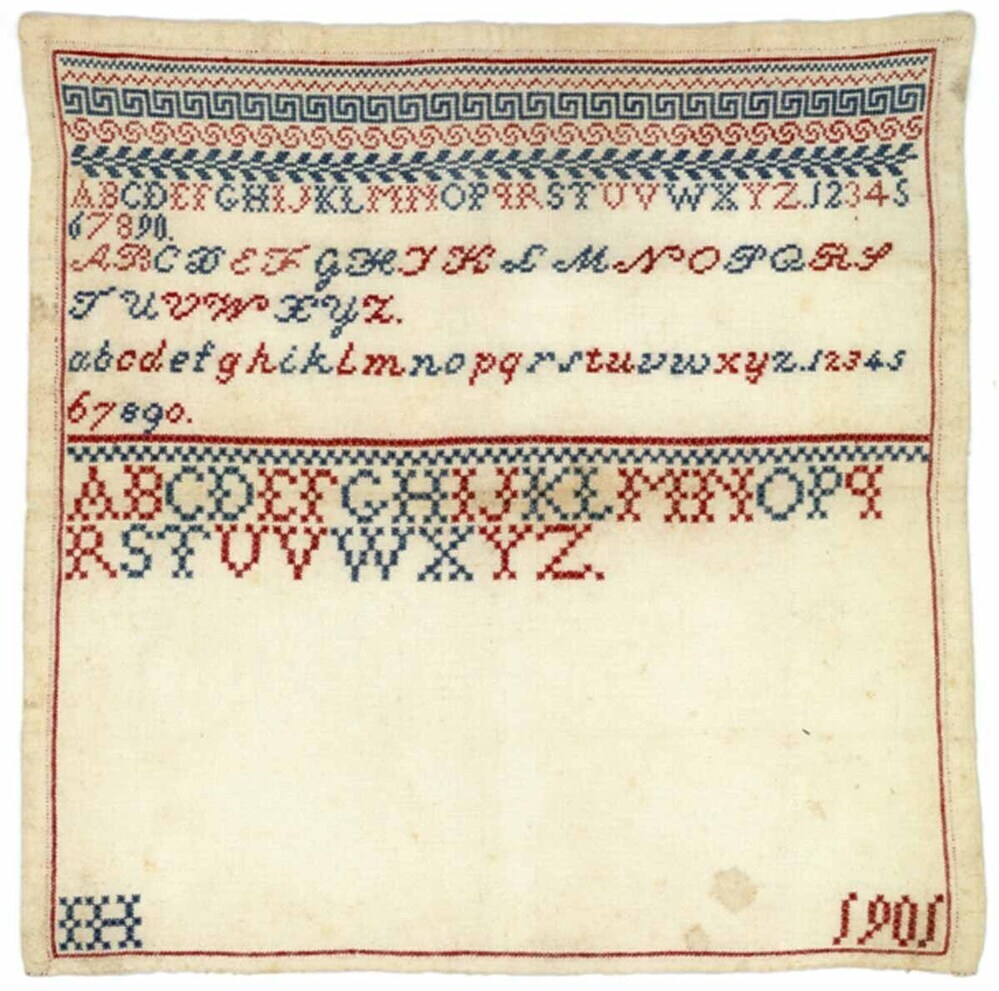 ABCDEFGHIJKLMNOPQRSTUVWXYZ.12345
67890.
ABCDEFGHIKLMNOPQRS
TUVWXYZ.
abcdefghiklmnopqrstuvwxyz.12345
67890.
ABCDEFGHIJKLMNOPQ
RSTUVWXYZ.
1901